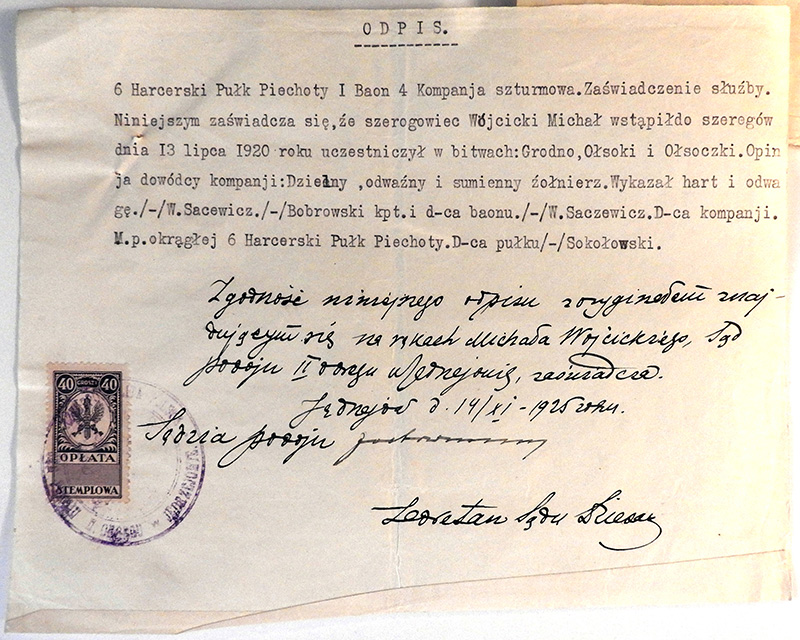 ODPIS.
6 Harcerski Pułk Piechoty I Baon 4 Kompanja szturmowa.Zaświadczenie służby.
Niniejszym zaświadcza się,że szerogowiec Wójcicki Michał wstąpiłdo szeregów
dnia 13 lipca 1920 roku uczestniczył w bitwach:Grodno,Ołsoki i Ołsoczki.Opin
ja dowódcy kompanji:Dzielny ,odważny i sumienny żołnierz.Wykazał hart i odwa
gę./-/W.Sacewicz./-/Bobrowski kpt.i d-ca baonu./-/W.Saczewicz.D-ca kompanji.
M.p.okrągłej 6 Harcerski Pułk Piechoty.D-ca pułku/-/Sokołowski.
Zgodność niniejszego odpisu z oryginałem znaj-
dującym się na rękach Michała Wojcickiego, Sąd
pokoju II okręgu w Jędrzejowie, zaświadcza.
Jędrzejów d. 14/XI - 1925 roku.
Sędzia pokoju
Sekretarz Sądu
40 GROSZY 40
OPŁATA
STEMPLOWA